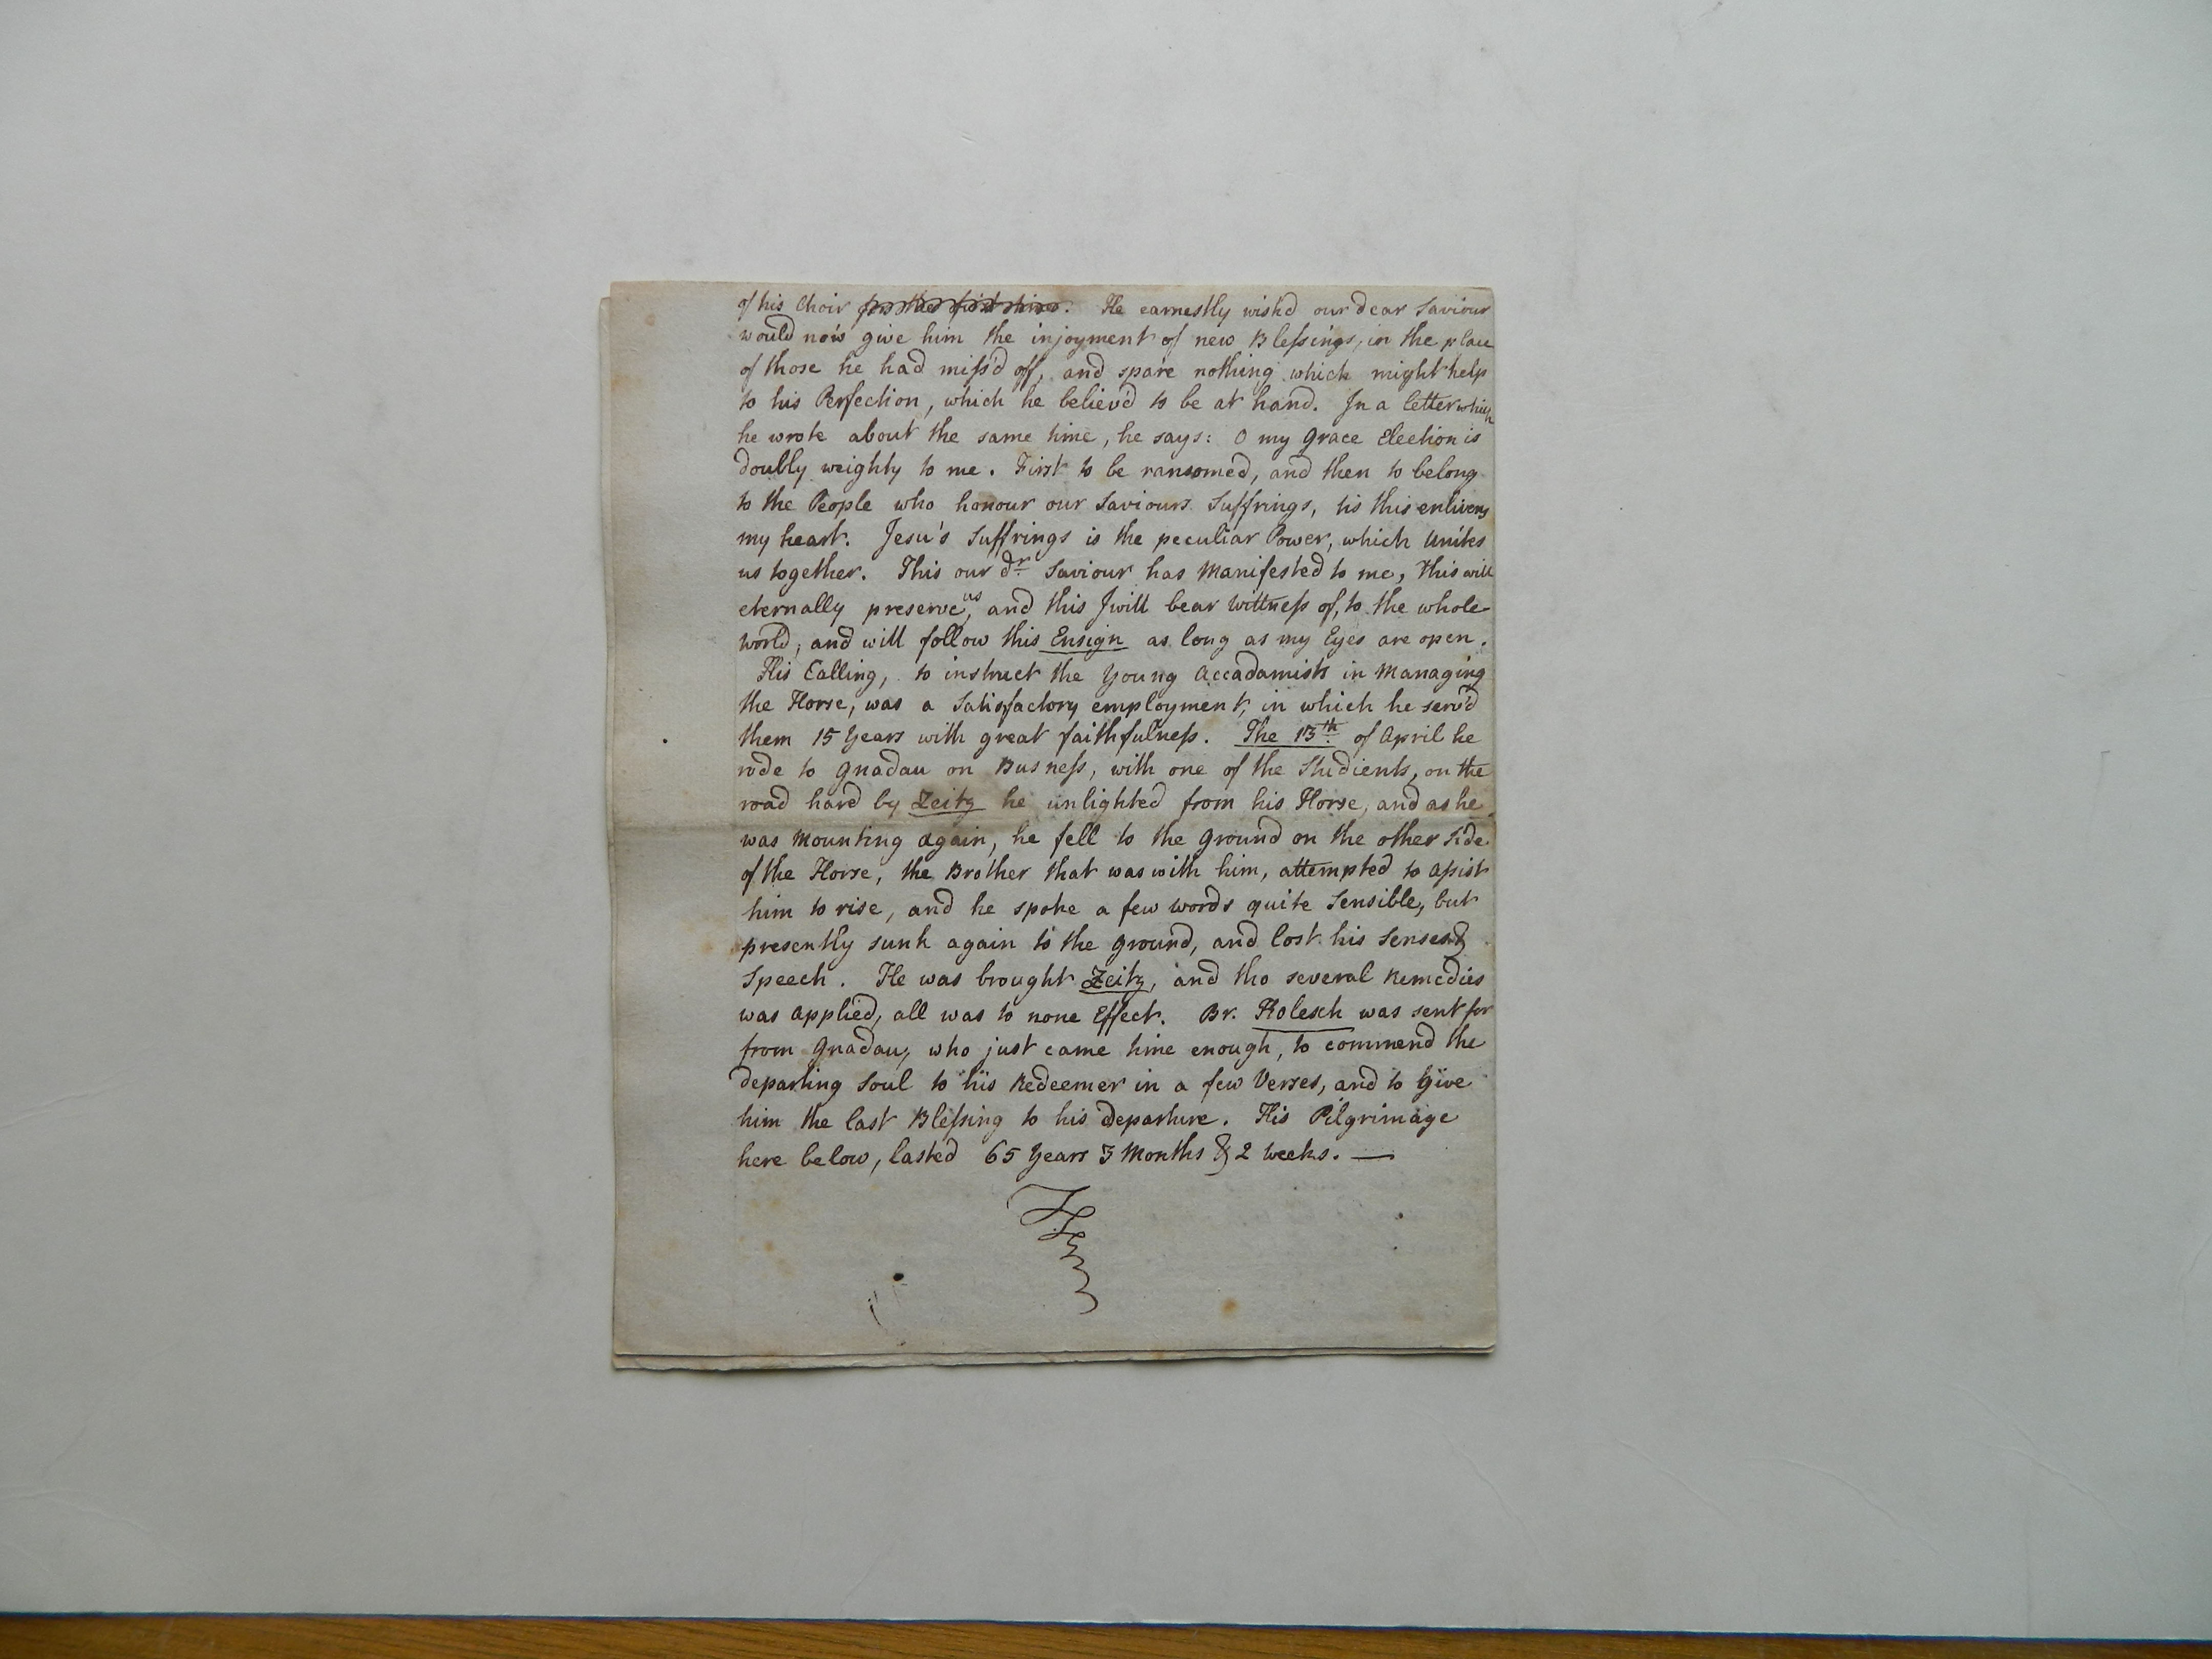 of his Choir for the first time. He earnestly wish'd our dear Saviour
would now give him the injoyment of new Blessings, in the place
of those he had miss'd off, and spare nothing which might help
to his Perfection, which he believ'd to be at hand. In a letter which
he wrote about the same time, he says: O my Grace Election is
doubly weighty to me. First to be ransomed, and then to belong
to the People who honour our Saviours Suffrings, tis this enlivens
my heart. Jesu's Suffrings is the peculiar Power, which Unites
us together. This our dr. Saviour has Manifested to me, this will
eternally preserve us, and this I will bear Wittness of, to the whole
World, and will follow this Ensign as long as my Eyes are open.
His Calling, to instruct the Young Accadamists in Managing
the Horse, was a Satisfactory employment, in which he serv'd
them 15 Years with great faithfulness. The 13th. of April he
rode to Gnadau on Busness, with one of the Studients, on the
road hard by Zeitz he unlighted from his Horse, and as he
was Mounting again, he fell to the Ground on the other Side
of the Horse, the Brother that was with him, attempted to assist
him to rise, and he spoke a few words quite Sensible, but
presently sunk again to the ground, and lost his Senses &
Speech. He was brought Zeitz, and tho several Remedies
was applied, all was to none Effect. Br. Kolesch was sent for
from Gnadau, who just came time enough, to commend the
departing Soul to his Redeemer in a few Verses, and to Give
him the last Blessing to his departure. His Pilgrimage
here below, lasted 65 Years 3 Months & 2 Weeks. —